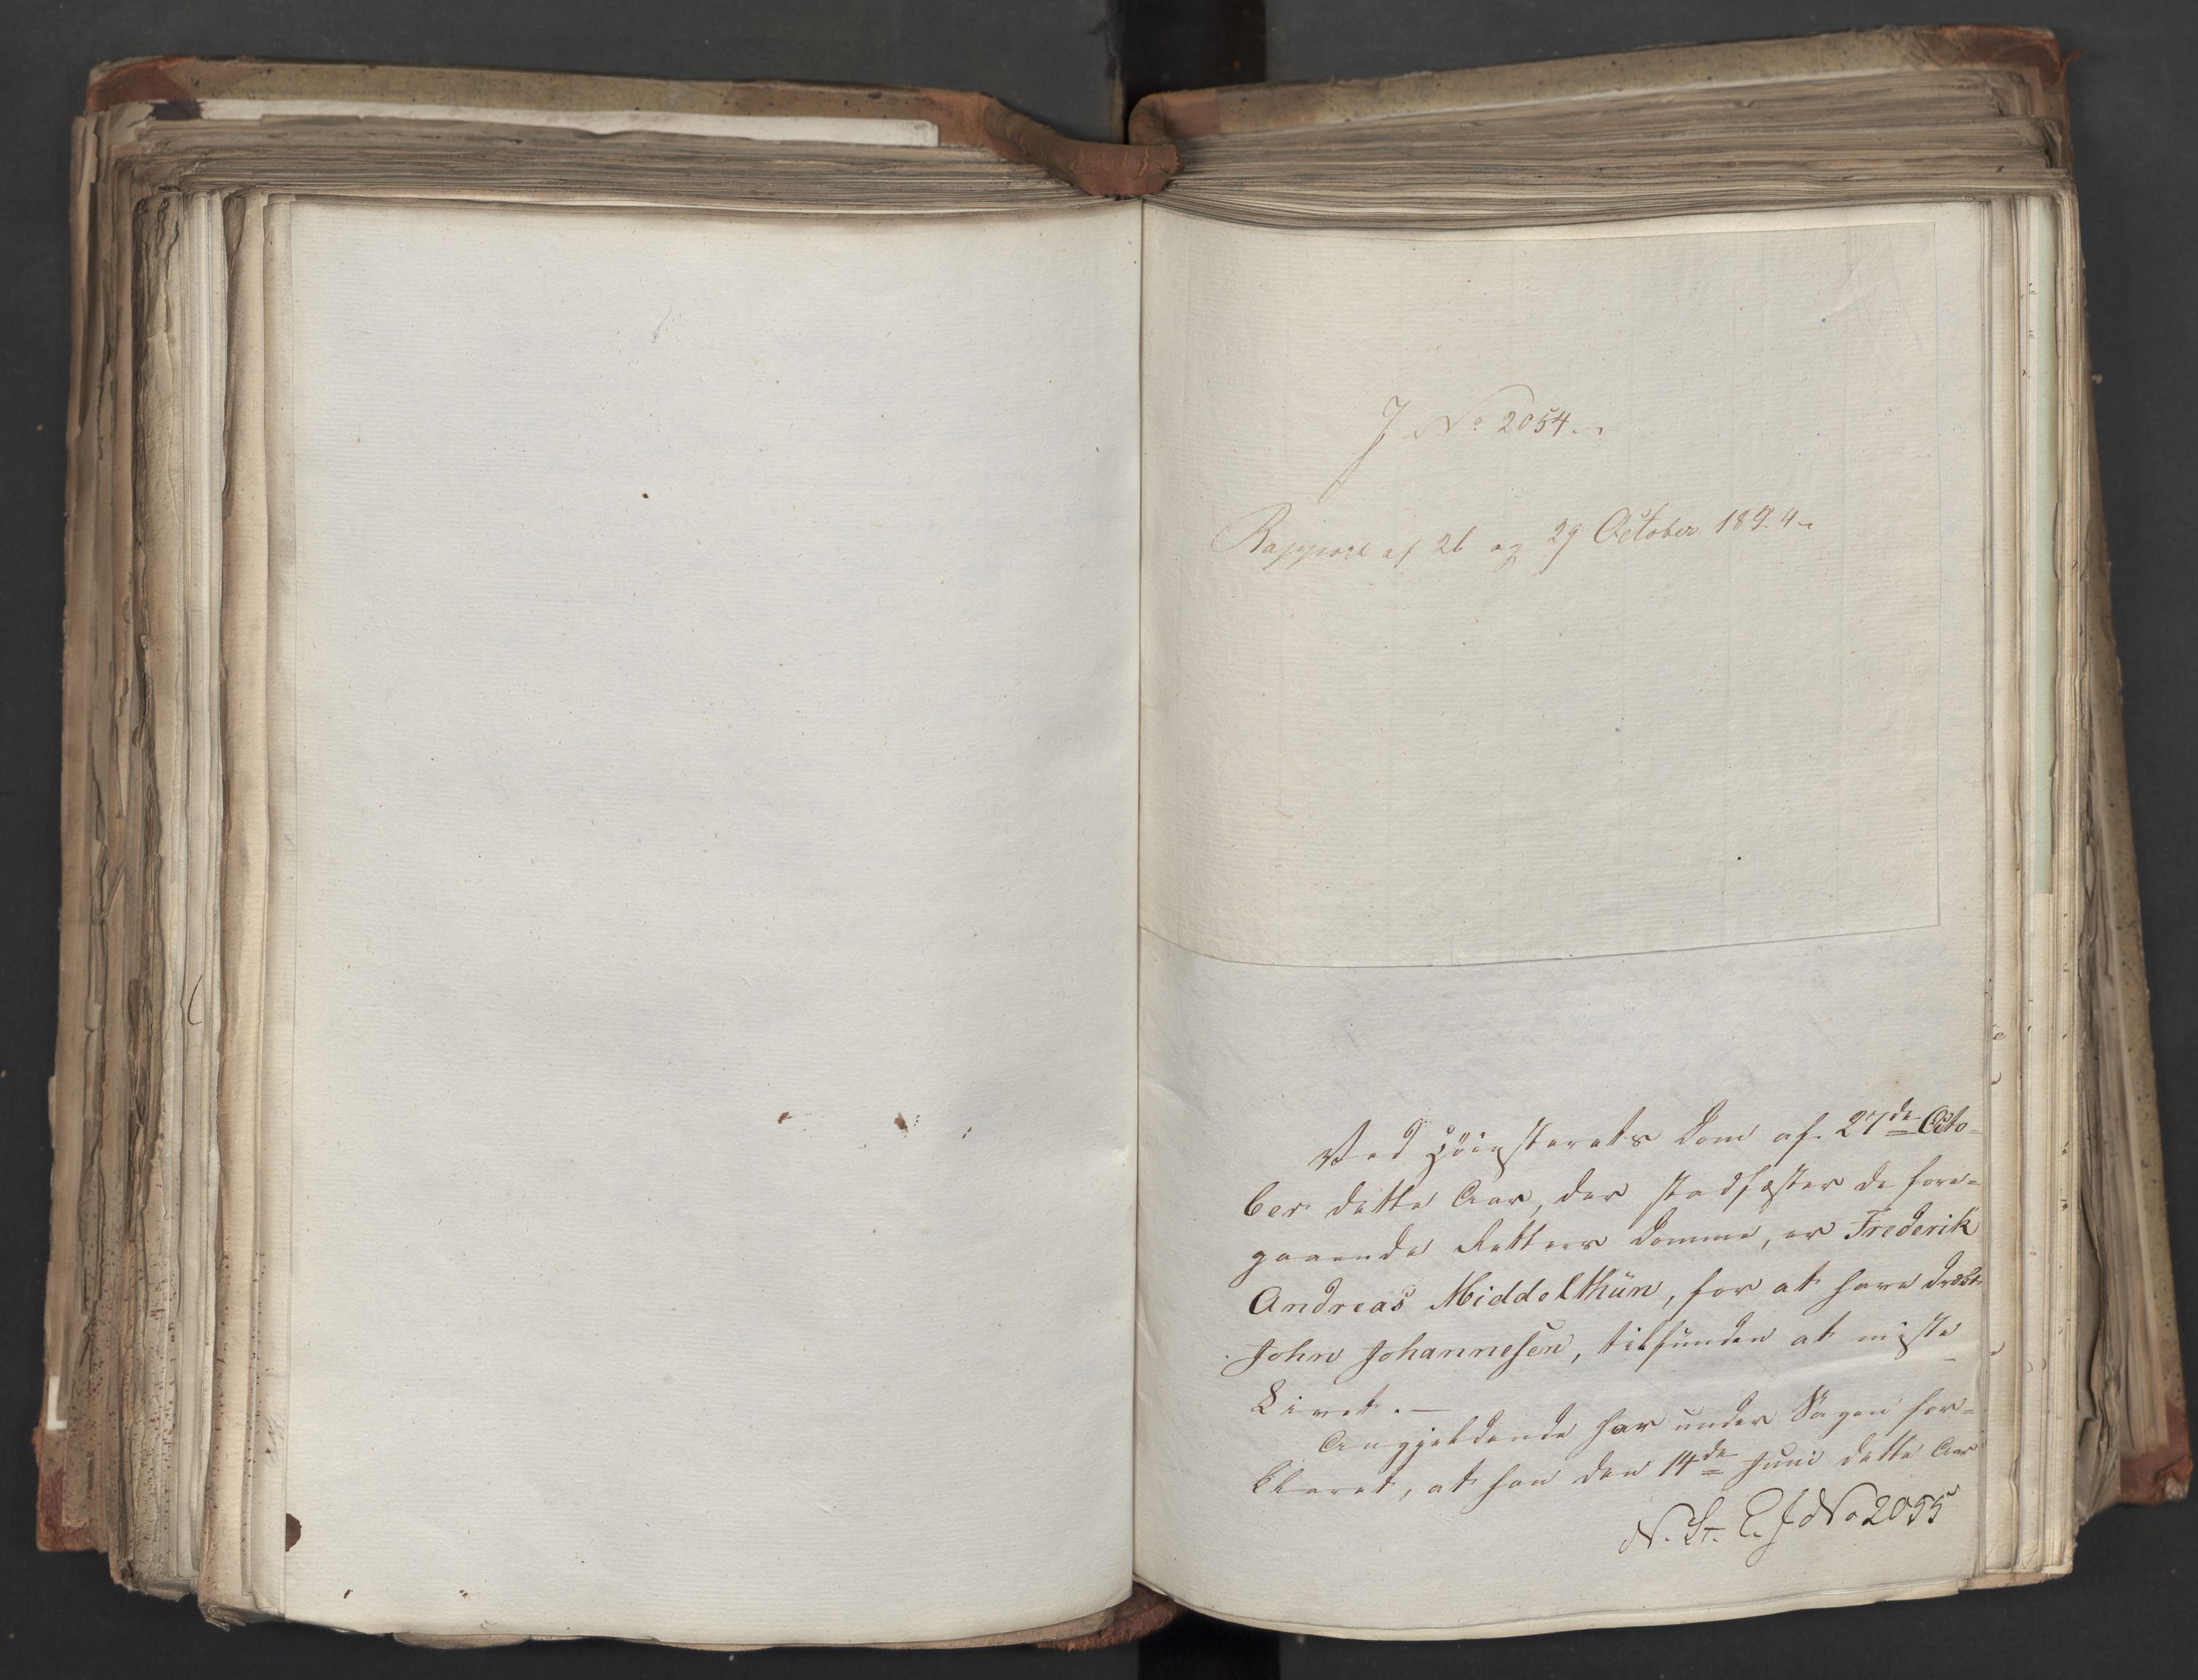 J No 2054.
Rapport af 26 og 29 October 1824
Ved Høiesterets Dom af 27de Octo-
ber dette Aar, der stadfæster de fore-
gaaende Retters Domme, er Frederik
Andreas Middelthün, for at have dræbt
John Johannesen, tilfunden at miste
Livet. —
Angjeldende har under Sagen for-
klaret, at han den 14de Juni dette Aar
N. St. E. J No 2055